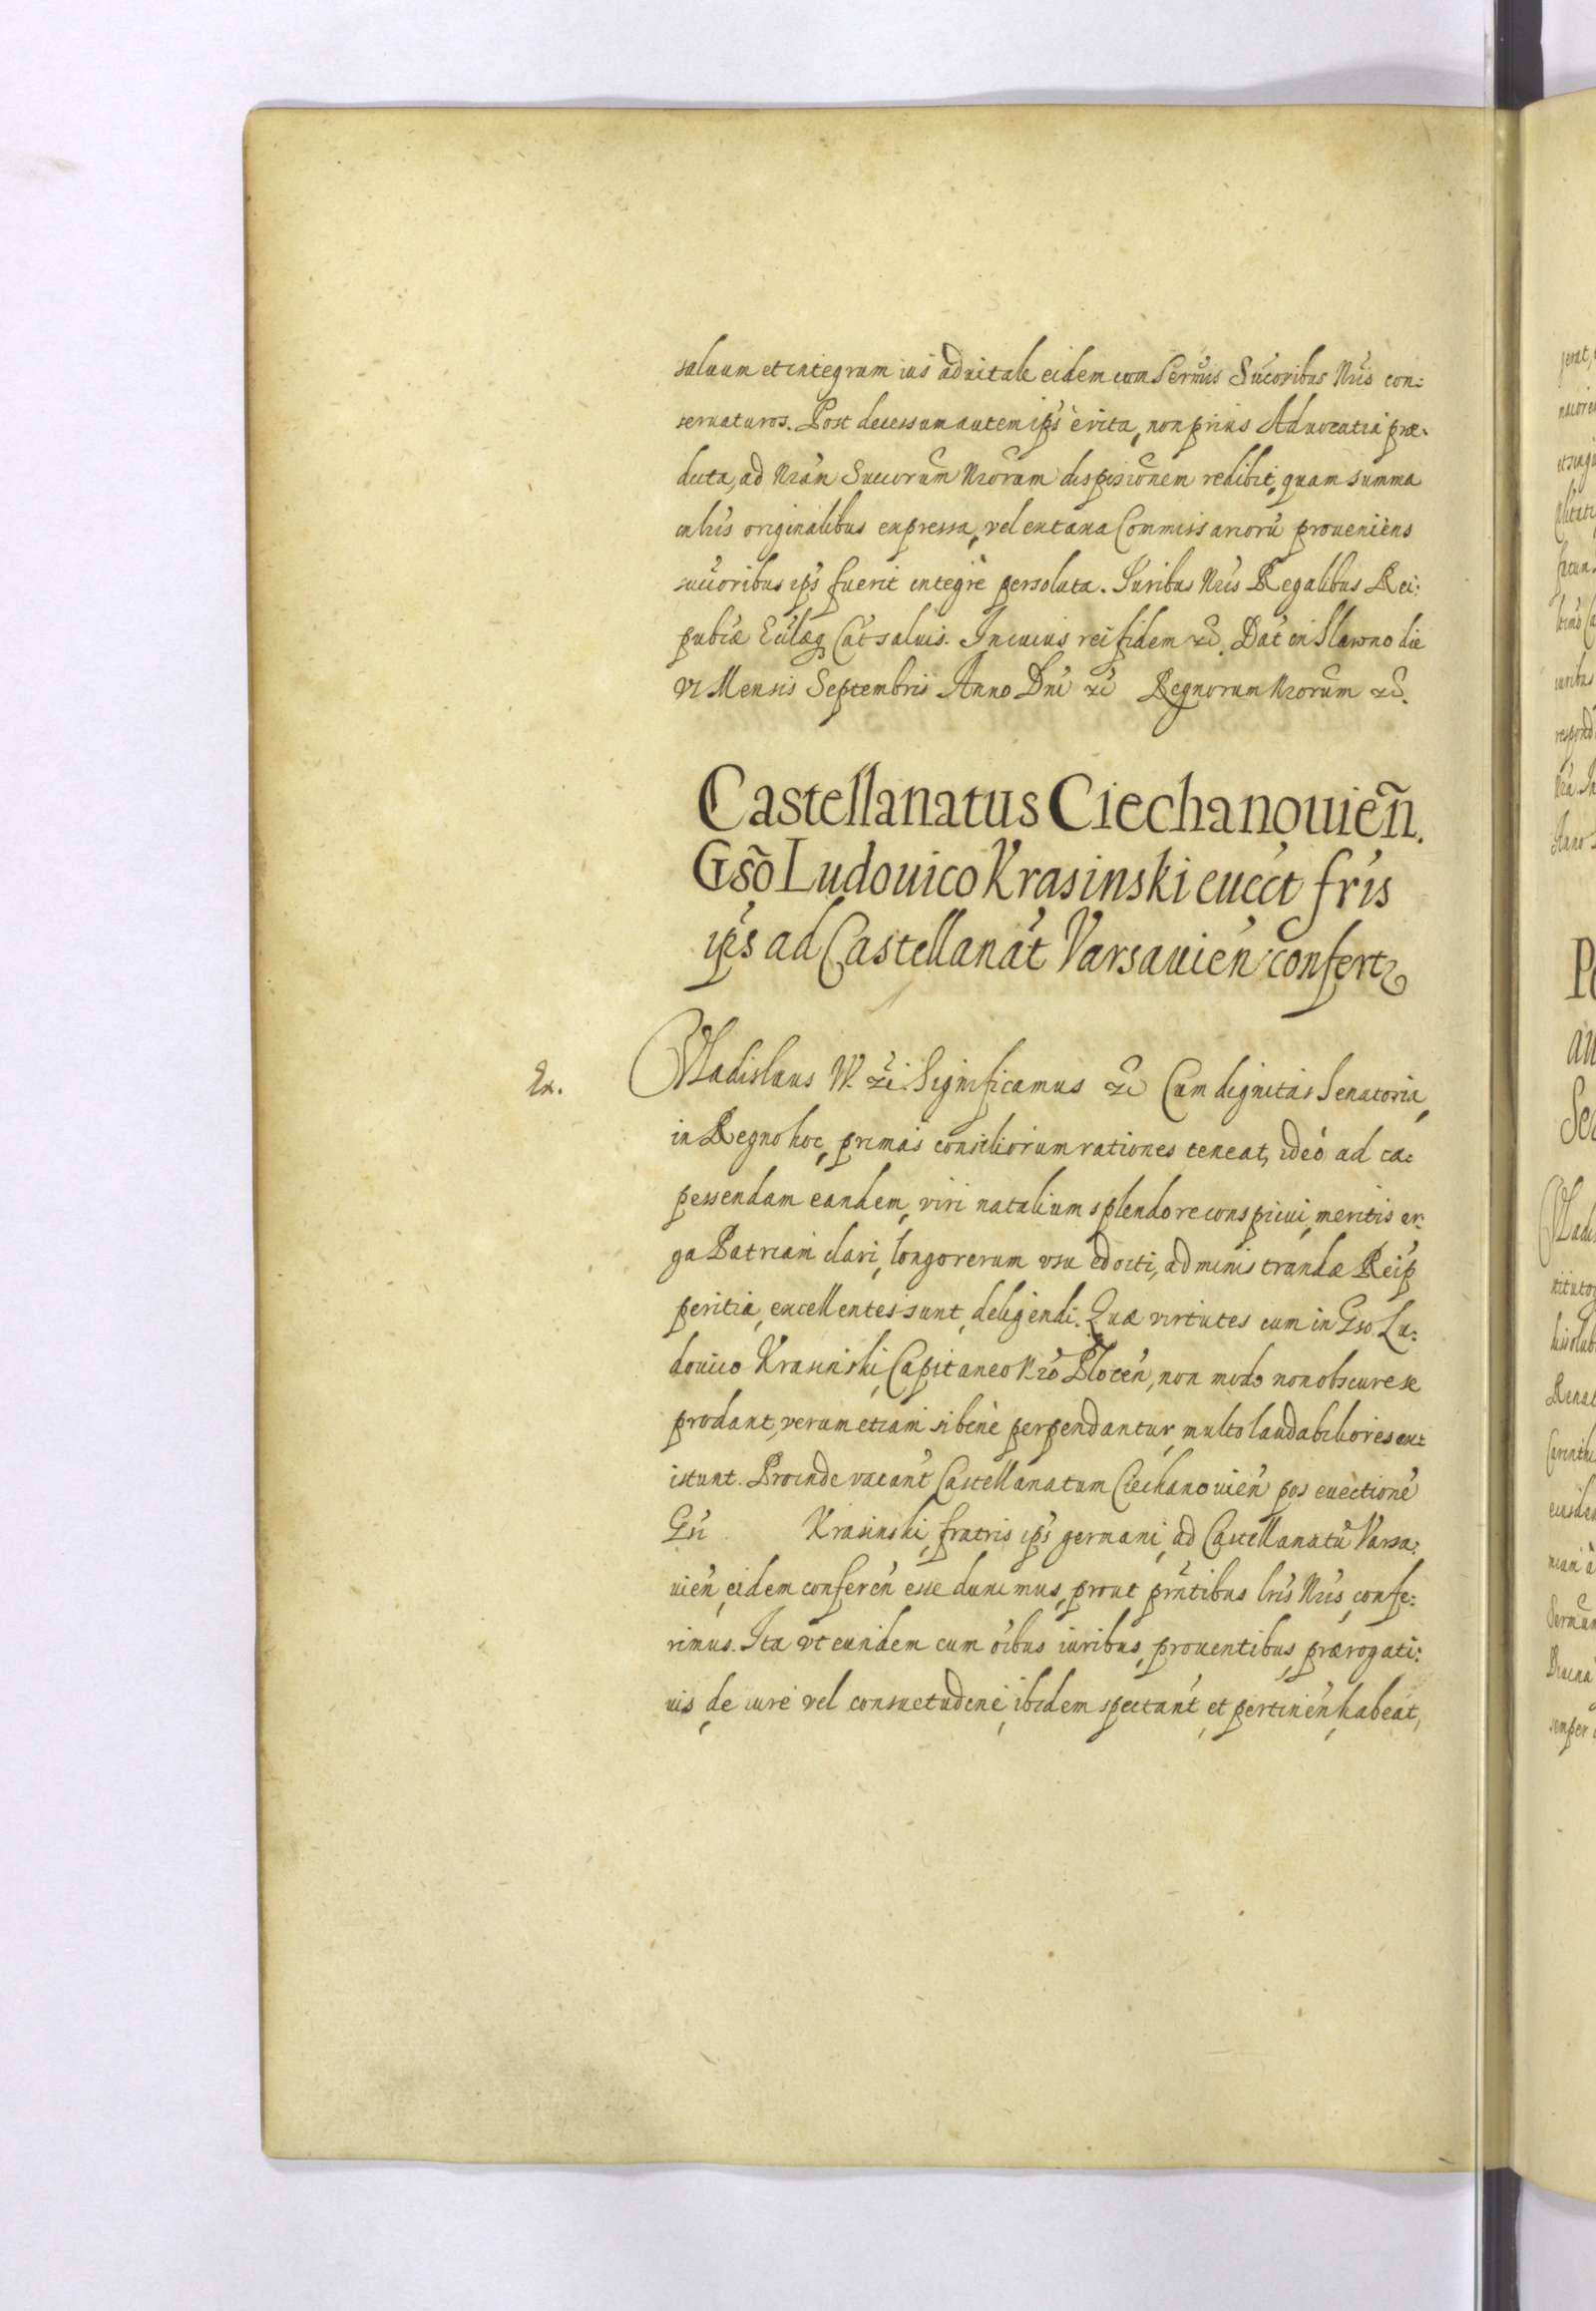 saluum et integrum ius aduitale eidem cum Sermis Succoribus Nris con:
seruaturos. Post decessum autem ips è vita, non prius Aduocatia præ-
dicta, ad Nram Succorum Nrorum disposicionem redibit, quam summa
in lris originalibus expressa, vel ex taxa Commissariorũ proueniens
succoribus ips fuerit integrè persoluta. Iuribus Nris Regalibus Rei:
publcæ Eclæq Cat saluis. In cuius rei fidem etc. Dat in Slawno die
VI Mensis Septembris Anno Dni etc Regnorum Nrorum etc.
Castellanatus Ciechanouieñ.
Gsõ Ludouico Krasinski euect fris
ips ad Castellanat Varsauien confert
Ex.
Vladislaus IV. etc. Significamus etc Cum dignitas Senatoria,
in Regno hoc, primas consiliorum rationes teneat, ideó ad ca:
pessendam eandem, viri natalium splendore conspicui, meritis er:
ga Patriam clari, longo rerum vsu edocti, administrandæ Reip
peritia, excellentes sunt, deligendi. Quæ virtutes cum in Gso Lu:
douico Krasinski, Capitaneo Nro Plocen, non modo non obscure se
prodant, verum etiam si benè perpendantur, multo laudabiliores ext
istunt. Proinde vacant Castellanatum Ciechanouien pos euectione
Gsi Krasinski, fratris ips germani, ad Castellanatũ Varsa:
uien, eidem conferen esse duximus, prout prntibus lris Nris, confe:
rimus. Ita vt eundem cum oibus iuribus, prouentibus, prærogati:
uis, de iure vel consuetudine, ibidem spectant, et pertinen, habeat,